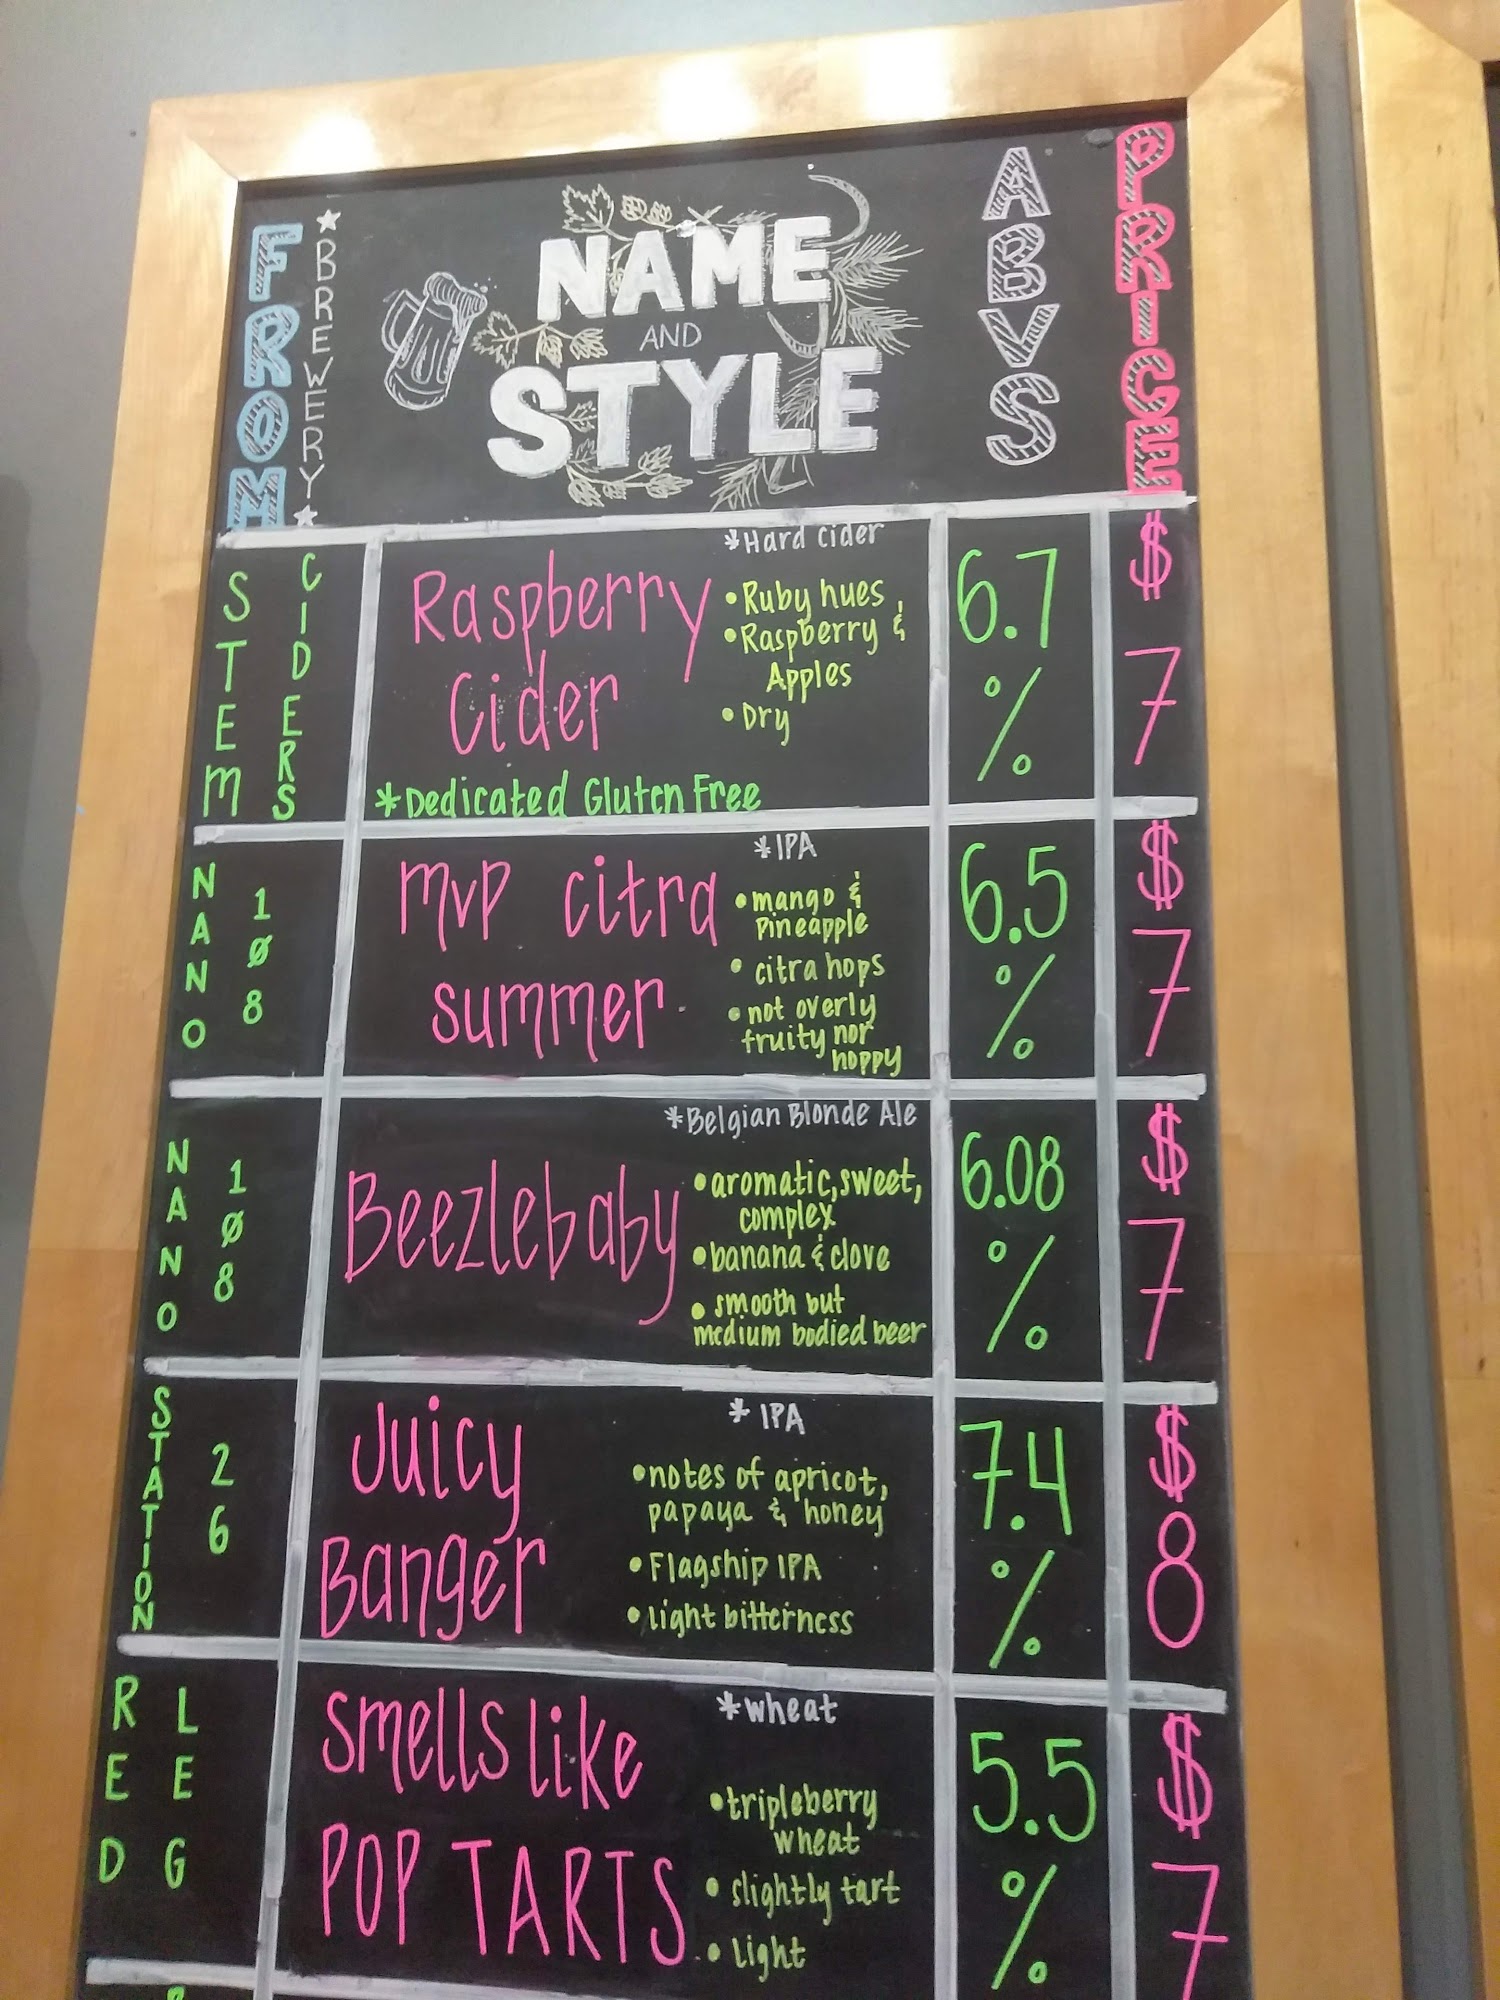 FROM
★BREWERY★
NAME
AND
STYLE
ABVS
PRICE
STEM
CIDERS
Raspberry
Cider
*Dedicated Gluten Free
*Hard cider
•Ruby hues,
•Raspberry &
Apples
•Dry
6.7
%
$
7
NANO
1Ø8
mvp citra
summer
*IPA
•mango &
Pineapple
•citra hops
•not overly
fruity nor
hoppy
6.5
%
$
7
NANO
1Ø8
Beezlebaby
*Belgian Blonde Ale
•aromatic, sweet,
complex
•banana & clove
•smooth but
medium bodied beer
6.08
%
$
7
STATION
26
Juicy
Banger
*IPA
•notes of apricot,
papaya & honey
•Flagship IPA
•light bitterness
7.4
%
$
8
RED
LEG
smells like
POP TARTS
*wheat
•tripleberry
wheat
•slightly tart
•light
5.5
%
$
7